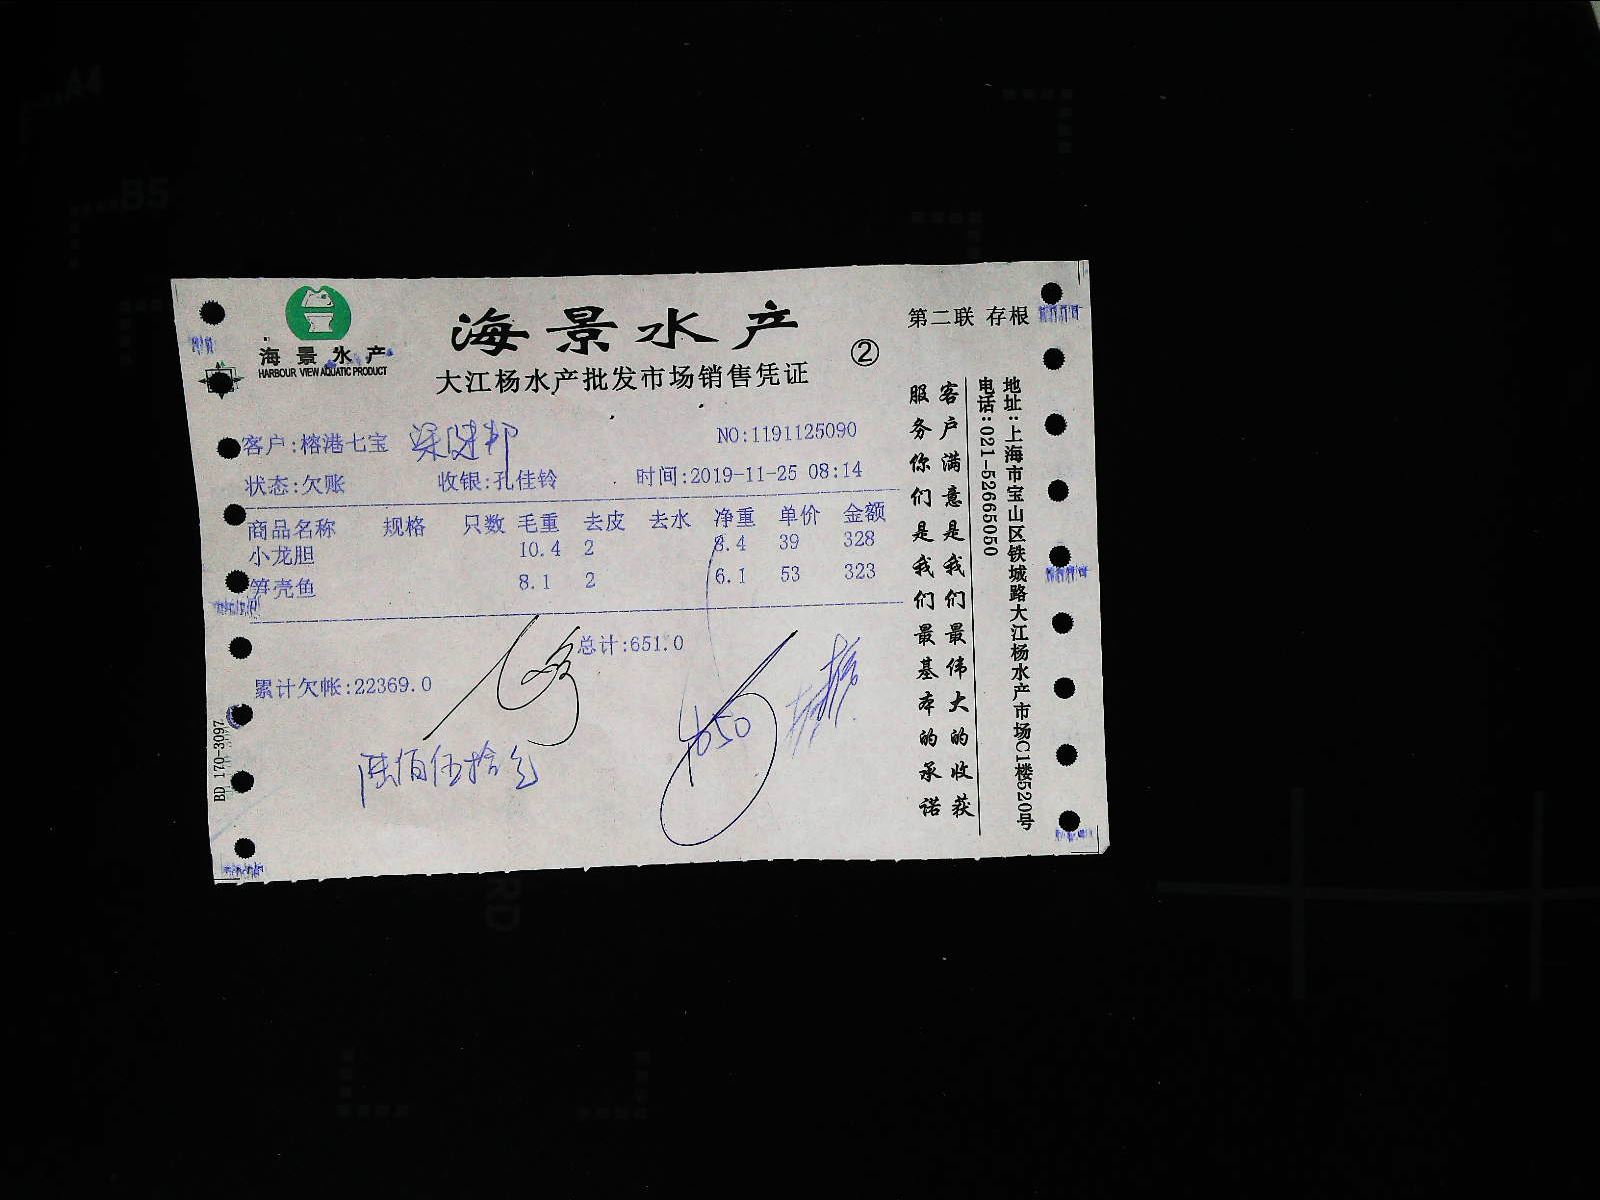 海景水产
HARBOUR VIEW AQUATIC PRODUCT
海景水产
大江杨水产批发市场销售凭证
②
第二联 存根
客户:榕港七宝
NO:1191125090
状态:欠账 收银:孔佳铃 时间:2019-11-25 08:14
商品名称 规格 只数 毛重 去皮 去水 净重 单价 金额
小龙胆 10.4 2 8.4 39 328
笋壳鱼 8.1 2 6.1 53 323
总计:651.0
累计欠帐:22369.0
650
陆佰伍拾元
客户满意是我们最伟大的收获
服务你们是我们最基本的承诺
地址:上海市宝山区铁城路大江杨水产市场C1楼520号
电话:021-52665050
BD 170-3097
A4
B5